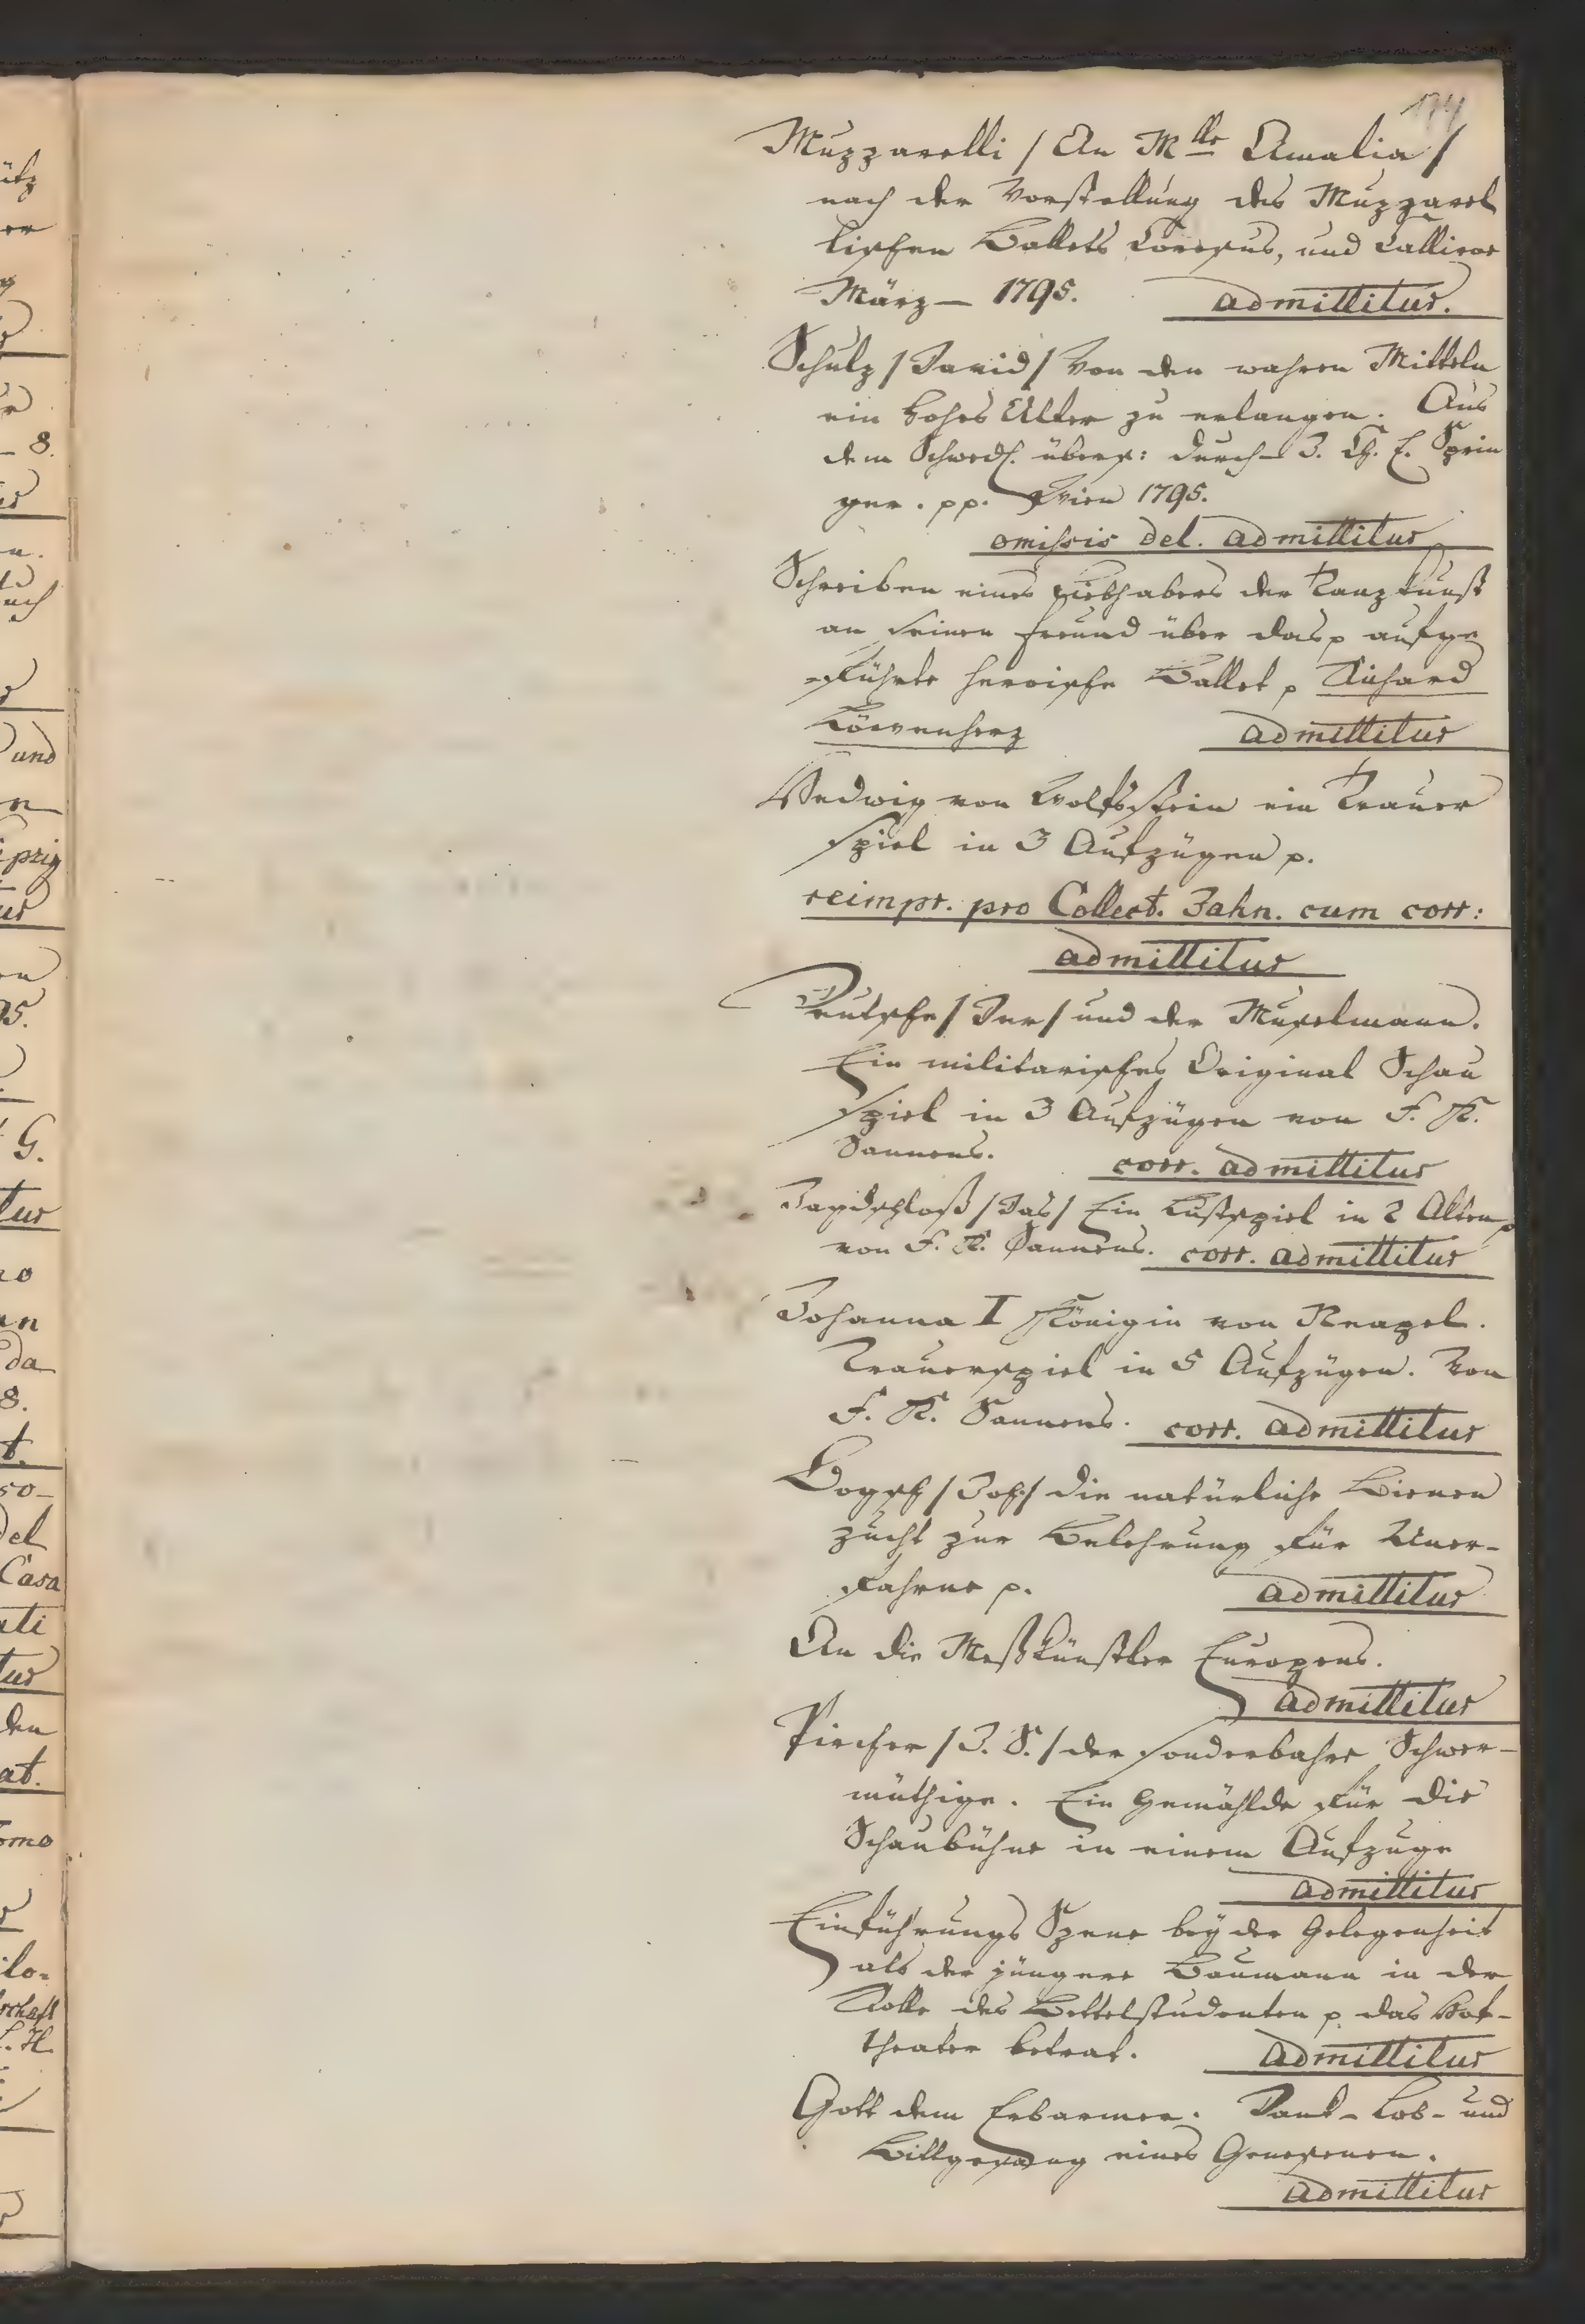 174
Muzzarelli / An Mlle Amalia /
nach der Vorstellung des Muzzarel
lischen Ballets Coresus, und Calliroe
März – 1795. admittitur.
Schulz / David / Von den wahren Mitteln
ein hohes Alter zu erlangen. Aus
dem Schwed. übers: durch J. Ch. E. Sprin
ger. pp. Wien 1795.
omissis del. admittitur
Schreiben eines Liebhabers der Tanzkunst
an seinen Freund über das p aufge
führte heroische Ballet p Richard
Löwenherz admittitur
Hedwig von Wolfsstein ein Trauer
spiel in 3 Aufzügen p.
reimpr. pro Collect. Jahn. cum corr:
admittitur
Deutsche / Der / und der Muselmann.
Ein militarisches Original Schau
spiel in 3 Aufzügen von F. K.
Sannens. corr. admittitur
Jagdschloß / Das / Ein Lustspiel in 2 Akten p
von F. K. Sannens. corr. admittitur
Johanna I Königin von Neapel.
Trauerspiel in 5 Aufzügen. Von
F. K. Sannens. corr. admittitur
Bogsch / Joh: / die natürliche Bienen
zucht zur Belehrung für Uner-
fahrne p. admittitur
An die Meßkünstler Europens.
admittitur
Pircher / J. S. / der sonderbahre Schwer-
müthige. Ein Gemählde für die
Schaubühne in einem Aufzuge
admittitur
Einführungs Szene bey der Gelegenheit
als der jüngere Baumann in der
Rolle des Bettelstudenten p das Hof-
theater betrat. admittitur
Gott dem Erbarmer. Dank- Lob- und
Bittgesang eines Genesenen.
admittitur